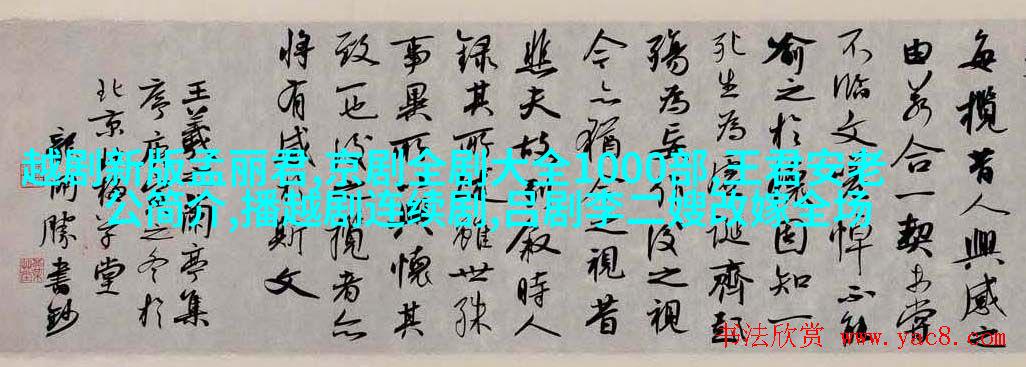 每攬昔人興感之
由若合一契未嘗
不臨文嗟悼不能
喻之於懷固知一
死生為虛誕齊彭
殤為妄作後之視
今亦猶今之視昔
悲夫故列敘時人
錄其所述雖世殊
事異所以興懷其
致一也後之視者亦
將有感於斯文
王羲之蘭亭集
序庚寅之冬於
北京堂
勝書鈔
越剧新版孟丽君,京剧全剧大全1000部,王君安老
公简介,播越剧连续剧,吕剧李二嫂改嫁全场
书法欣赏 www.yac8.com